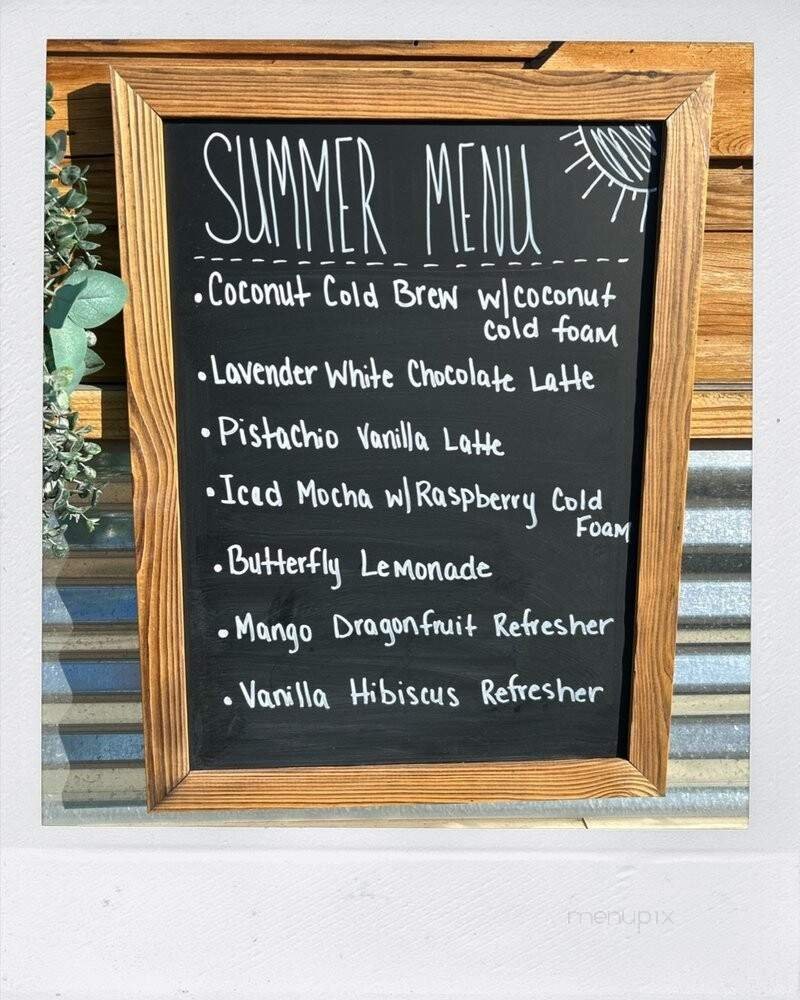 SUMMER MENU
• Coconut Cold Brew w/coconut
cold foam
• Lavender White Chocolate Latte
• Pistachio Vanilla Latte
• Iced Mocha w/Raspberry Cold
Foam
• Butterfly Lemonade
• Mango Dragonfruit Refresher
• Vanilla Hibiscus Refresher
menupix